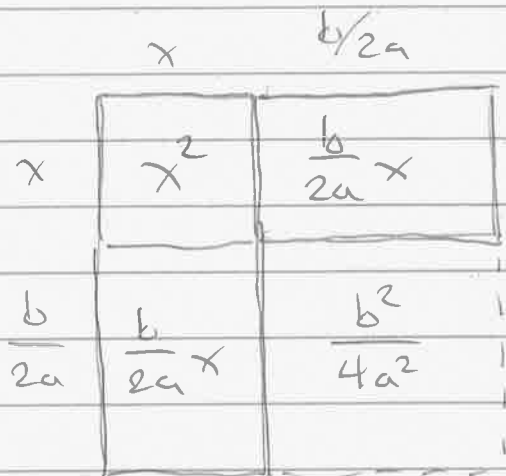 x b/2a
x x² b/2a x
b/2a b/2a x b²/4a²